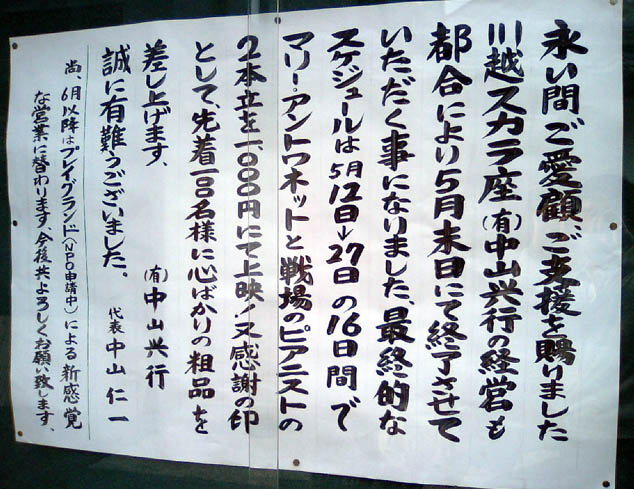 永い間ご愛顧、ご支援を賜りました
川越スカラ座(有)中山興行の経営も
都合により5月末日にて終了させて
いただく事になりました、最終的な
スケジュールは5月12日→27日の16日間で
マリー・アントワネットと戦場のピアニストの
2本立を一、〇〇〇円にて上映!又感謝の印
として、先着一〇〇名様に心ばかりの粗品を
差し上げます、
(有)中山興行
誠に有難うございました。
代表 中山仁一
尚、6月以降はプレイグランド(NPO申請中)による新感覚
な営業に替わります、今後共よろしくお願い致します、